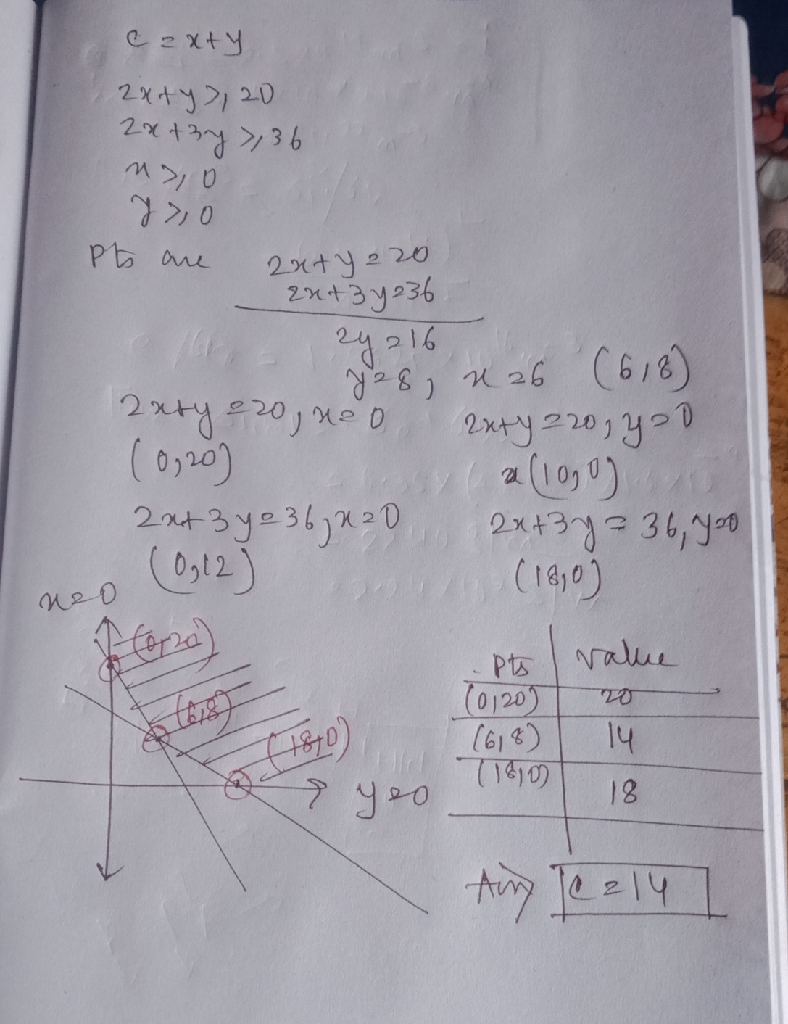 C = x+y
2x+y ≥ 20
2x+3y ≥ 36
x ≥ 0
y ≥ 0
Pts are 2x+y=20
2x+3y=36
2y=16
y=8, x=6 (6,8)
2x+y=20, x=0 2x+y=20, y=0
(0,20) (10,0)
2x+3y=36, x=0 2x+3y=36, y=0
(0,12) (18,0)
x=0
(0,20)
(6,8)
(18,0)
y=0
Pts value
(0,20) 20
(6,8) 14
(18,0) 18
Ans C=14